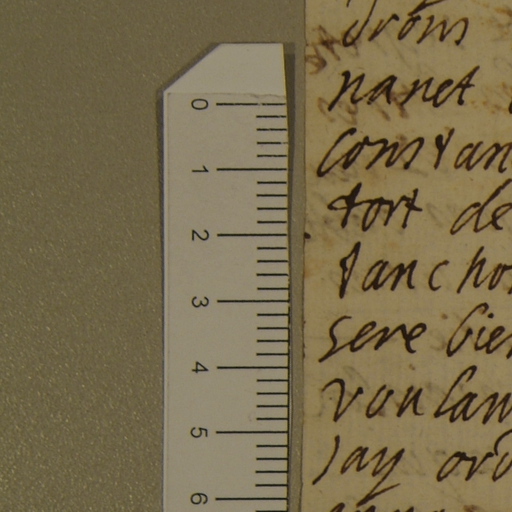 0
1
2
3
4
5
6
nanet
constan
tort de
tanc hon
sere bien
voulan
jay ord